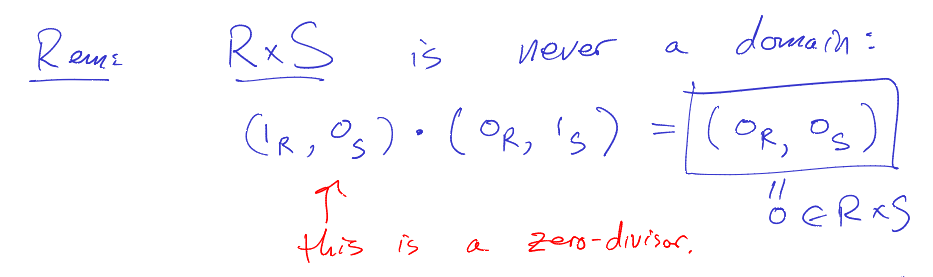 Rem: R×S is never a domain:
(1_R, 0_S) · (0_R, 1_S) = (0_R, 0_S)
"
0 ∈ R×S
this is a zero-divisor.